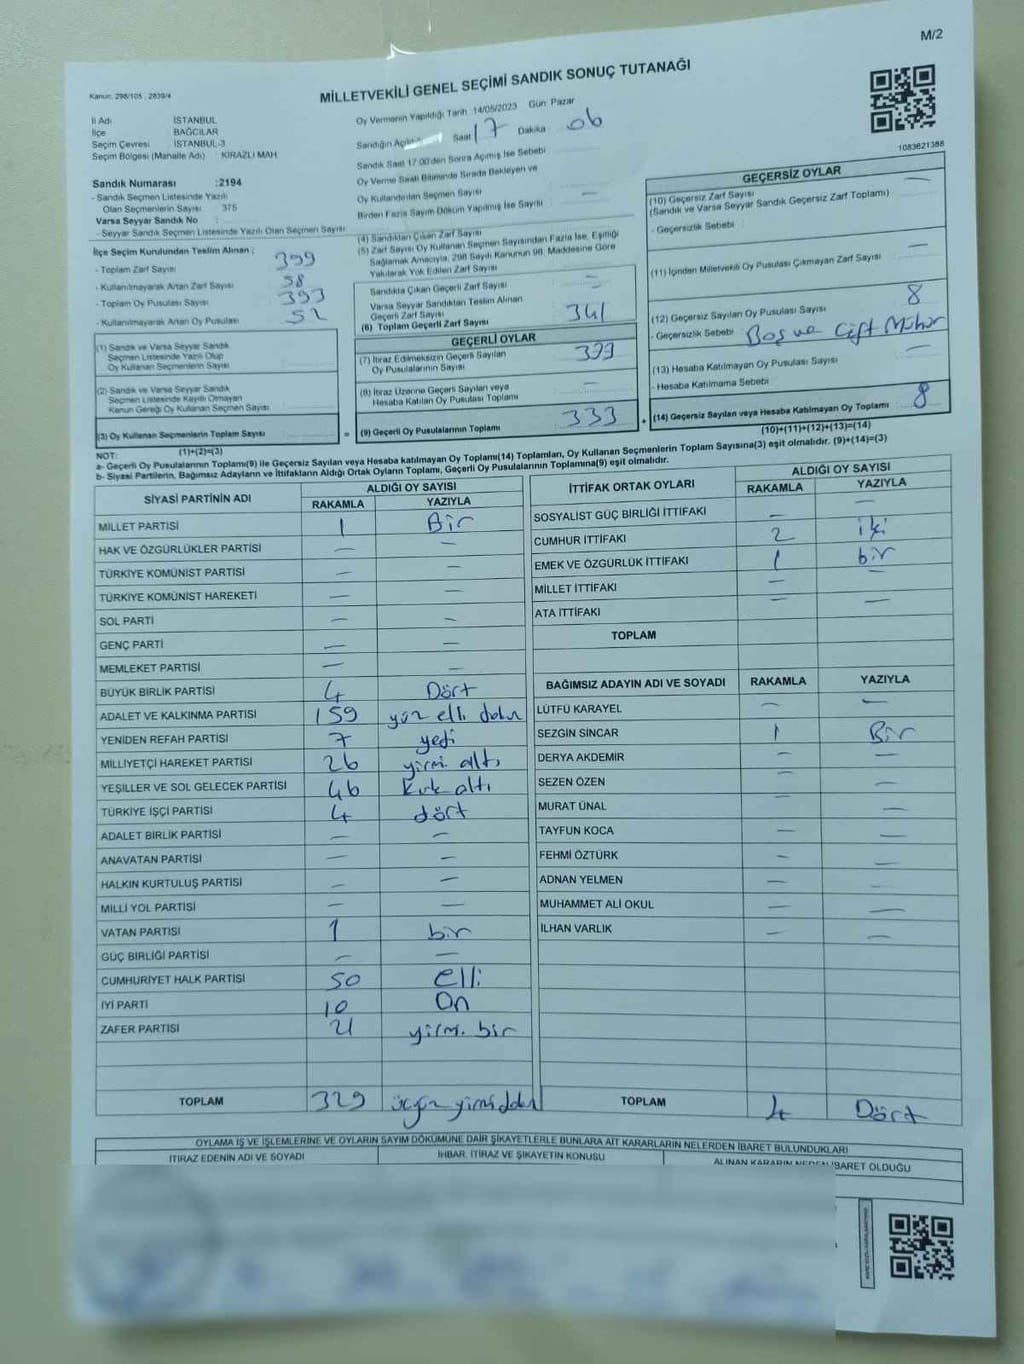 M/2
Kanun: 298/105 , 2839/4
MİLLETVEKİLİ GENEL SEÇİMİ SANDIK SONUÇ TUTANAĞI
1083621388
İl Adı İSTANBUL
İlçe BAĞCILAR
Seçim Çevresi : İSTANBUL-3
Seçim Bölgesi (Mahalle Adı) : KİRAZLI MAH
Sandık Numarası :2194
- Sandık Seçmen Listesinde Yazılı
Olan Seçmenlerin Sayısı 375
Varsa Seyyar Sandık No :
- Seyyar Sandık Seçmen Listesinde Yazılı Olan Seçmen Sayısı
Oy Vermenin Yapıldığı Tarih :14/05/2023 Gün: Pazar
Sandığın Saat 17 Dakika 06
Sandık Saat 17:00'den Sonra Açılmış İse Sebebi
Oy Verme Saati Bitiminde Sırada Bekleyen ve
Oy Kullandırılan Seçmen Sayısı —
Birden Fazla Sayım Döküm Yapılmış İse Sayısı —
İlçe Seçim Kurulundan Teslim Alınan :
- Toplam Zarf Sayısı 399
- Kullanılmayarak Artan Zarf Sayısı 58
- Toplam Oy Pusulası Sayısı 393
- Kullanılmayarak Artan Oy Pusulası 52
(1) Sandık ve Varsa Seyyar Sandık
Seçmen Listesinde Yazılı Olup
Oy Kullanan Seçmenlerin Sayısı
(2) Sandık ve Varsa Seyyar Sandık
Seçmen Listesinde Kayıtlı Olmayan
Kanun Gereği Oy Kullanan Seçmen Sayısı
(3) Oy Kullanan Seçmenlerin Toplam Sayısı =
(1)+(2)=(3)
(4) Sandıktan Çıkan Zarf Sayısı
(5) Zarf Sayısı Oy Kullanan Seçmen Sayısından Fazla İse, Eşitliği
Sağlamak Amacıyla, 298 Sayılı Kanunun 98. Maddesine Göre
Yakılarak Yok Edilen Zarf Sayısı
Sandıkta Çıkan Geçerli Zarf Sayısı —
Varsa Seyyar Sandıktan Teslim Alınan
Geçerli Zarf Sayısı —
(6) Toplam Geçerli Zarf Sayısı 341
GEÇERLİ OYLAR
(7) İtiraz Edilmeksizin Geçerli Sayılan
Oy Pusulalarının Sayısı 333
(8) İtiraz Üzerine Geçerli Sayılan veya
Hesaba Katılan Oy Pusulası Toplamı —
(9) Geçerli Oy Pusulalarının Toplamı 333 +
GEÇERSİZ OYLAR
(10) Geçersiz Zarf Sayısı —
(Sandık ve Varsa Seyyar Sandık Geçersiz Zarf Toplamı)
- Geçersizlik Sebebi :
(11) İçinden Milletvekili Oy Pusulası Çıkmayan Zarf Sayısı —
(12) Geçersiz Sayılan Oy Pusulası Sayısı 8
- Geçersizlik Sebebi Boş ve Çift Mühür
(13) Hesaba Katılmayan Oy Pusulası Sayısı —
- Hesaba Katılmama Sebebi
(14) Geçersiz Sayılan veya Hesaba Katılmayan Oy Toplamı 8
(10)+(11)+(12)+(13)=(14)
NOT:
a- Geçerli Oy Pusulalarının Toplamı(9) ile Geçersiz Sayılan veya Hesaba katılmayan Oy Toplamı(14) Toplamları, Oy Kullanan Seçmenlerin Toplam Sayısına(3) eşit olmalıdır. (9)+(14)=(3)
b- Siyasi Partilerin, Bağımsız Adayların ve İttifakların Aldığı Ortak Oyların Toplamı, Geçerli Oy Pusulalarının Toplamına(9) eşit olmalıdır.
SİYASİ PARTİNİN ADI ALDIĞI OY SAYISI
RAKAMLA YAZIYLA
MİLLET PARTİSİ 1 Bir
HAK VE ÖZGÜRLÜKLER PARTİSİ — —
TÜRKİYE KOMÜNİST PARTİSİ — —
TÜRKİYE KOMÜNİST HAREKETİ — —
SOL PARTİ — —
GENÇ PARTİ — —
MEMLEKET PARTİSİ — —
BÜYÜK BİRLİK PARTİSİ 4 Dört
ADALET VE KALKINMA PARTİSİ 159 yüz elli dokuz
YENİDEN REFAH PARTİSİ 7 yedi
MİLLİYETÇİ HAREKET PARTİSİ 26 yirmi altı
YEŞİLLER VE SOL GELECEK PARTİSİ 46 kırk altı
TÜRKİYE İŞÇİ PARTİSİ 4 dört
ADALET BİRLİK PARTİSİ — —
ANAVATAN PARTİSİ — —
HALKIN KURTULUŞ PARTİSİ — —
MİLLİ YOL PARTİSİ — —
VATAN PARTİSİ 1 bir
GÜÇ BİRLİĞİ PARTİSİ — —
CUMHURİYET HALK PARTİSİ 50 elli
İYİ PARTİ 10 On
ZAFER PARTİSİ 21 yirmi bir
TOPLAM 329 üçyüz yirmidokuz
İTTİFAK ORTAK OYLARI ALDIĞI OY SAYISI
RAKAMLA YAZIYLA
SOSYALİST GÜÇ BİRLİĞİ İTTİFAKI — —
CUMHUR İTTİFAKI 2 iki
EMEK VE ÖZGÜRLÜK İTTİFAKI 1 bir
MİLLET İTTİFAKI — —
ATA İTTİFAKI — —
TOPLAM
BAĞIMSIZ ADAYIN ADI VE SOYADI RAKAMLA YAZIYLA
LÜTFÜ KARAYEL — —
SEZGİN SİNCAR 1 Bir
DERYA AKDEMİR — —
SEZEN ÖZEN — —
MURAT ÜNAL — —
TAYFUN KOCA — —
FEHMİ ÖZTÜRK — —
ADNAN YELMEN — —
MUHAMMET ALİ OKUL — —
İLHAN VARLIK — —
TOPLAM 4 Dört
OYLAMA İŞ VE İŞLEMLERİNE VE OYLARIN SAYIM DÖKÜMÜNE DAİR ŞİKAYETLERLE BUNLARA AİT KARARLARIN NELERDEN İBARET BULUNDUKLARI
İTİRAZ EDENİN ADI VE SOYADI İHBAR, İTİRAZ VE ŞİKAYETİN KONUSU ALINAN KARARIN NEDEN İBARET OLDUĞU